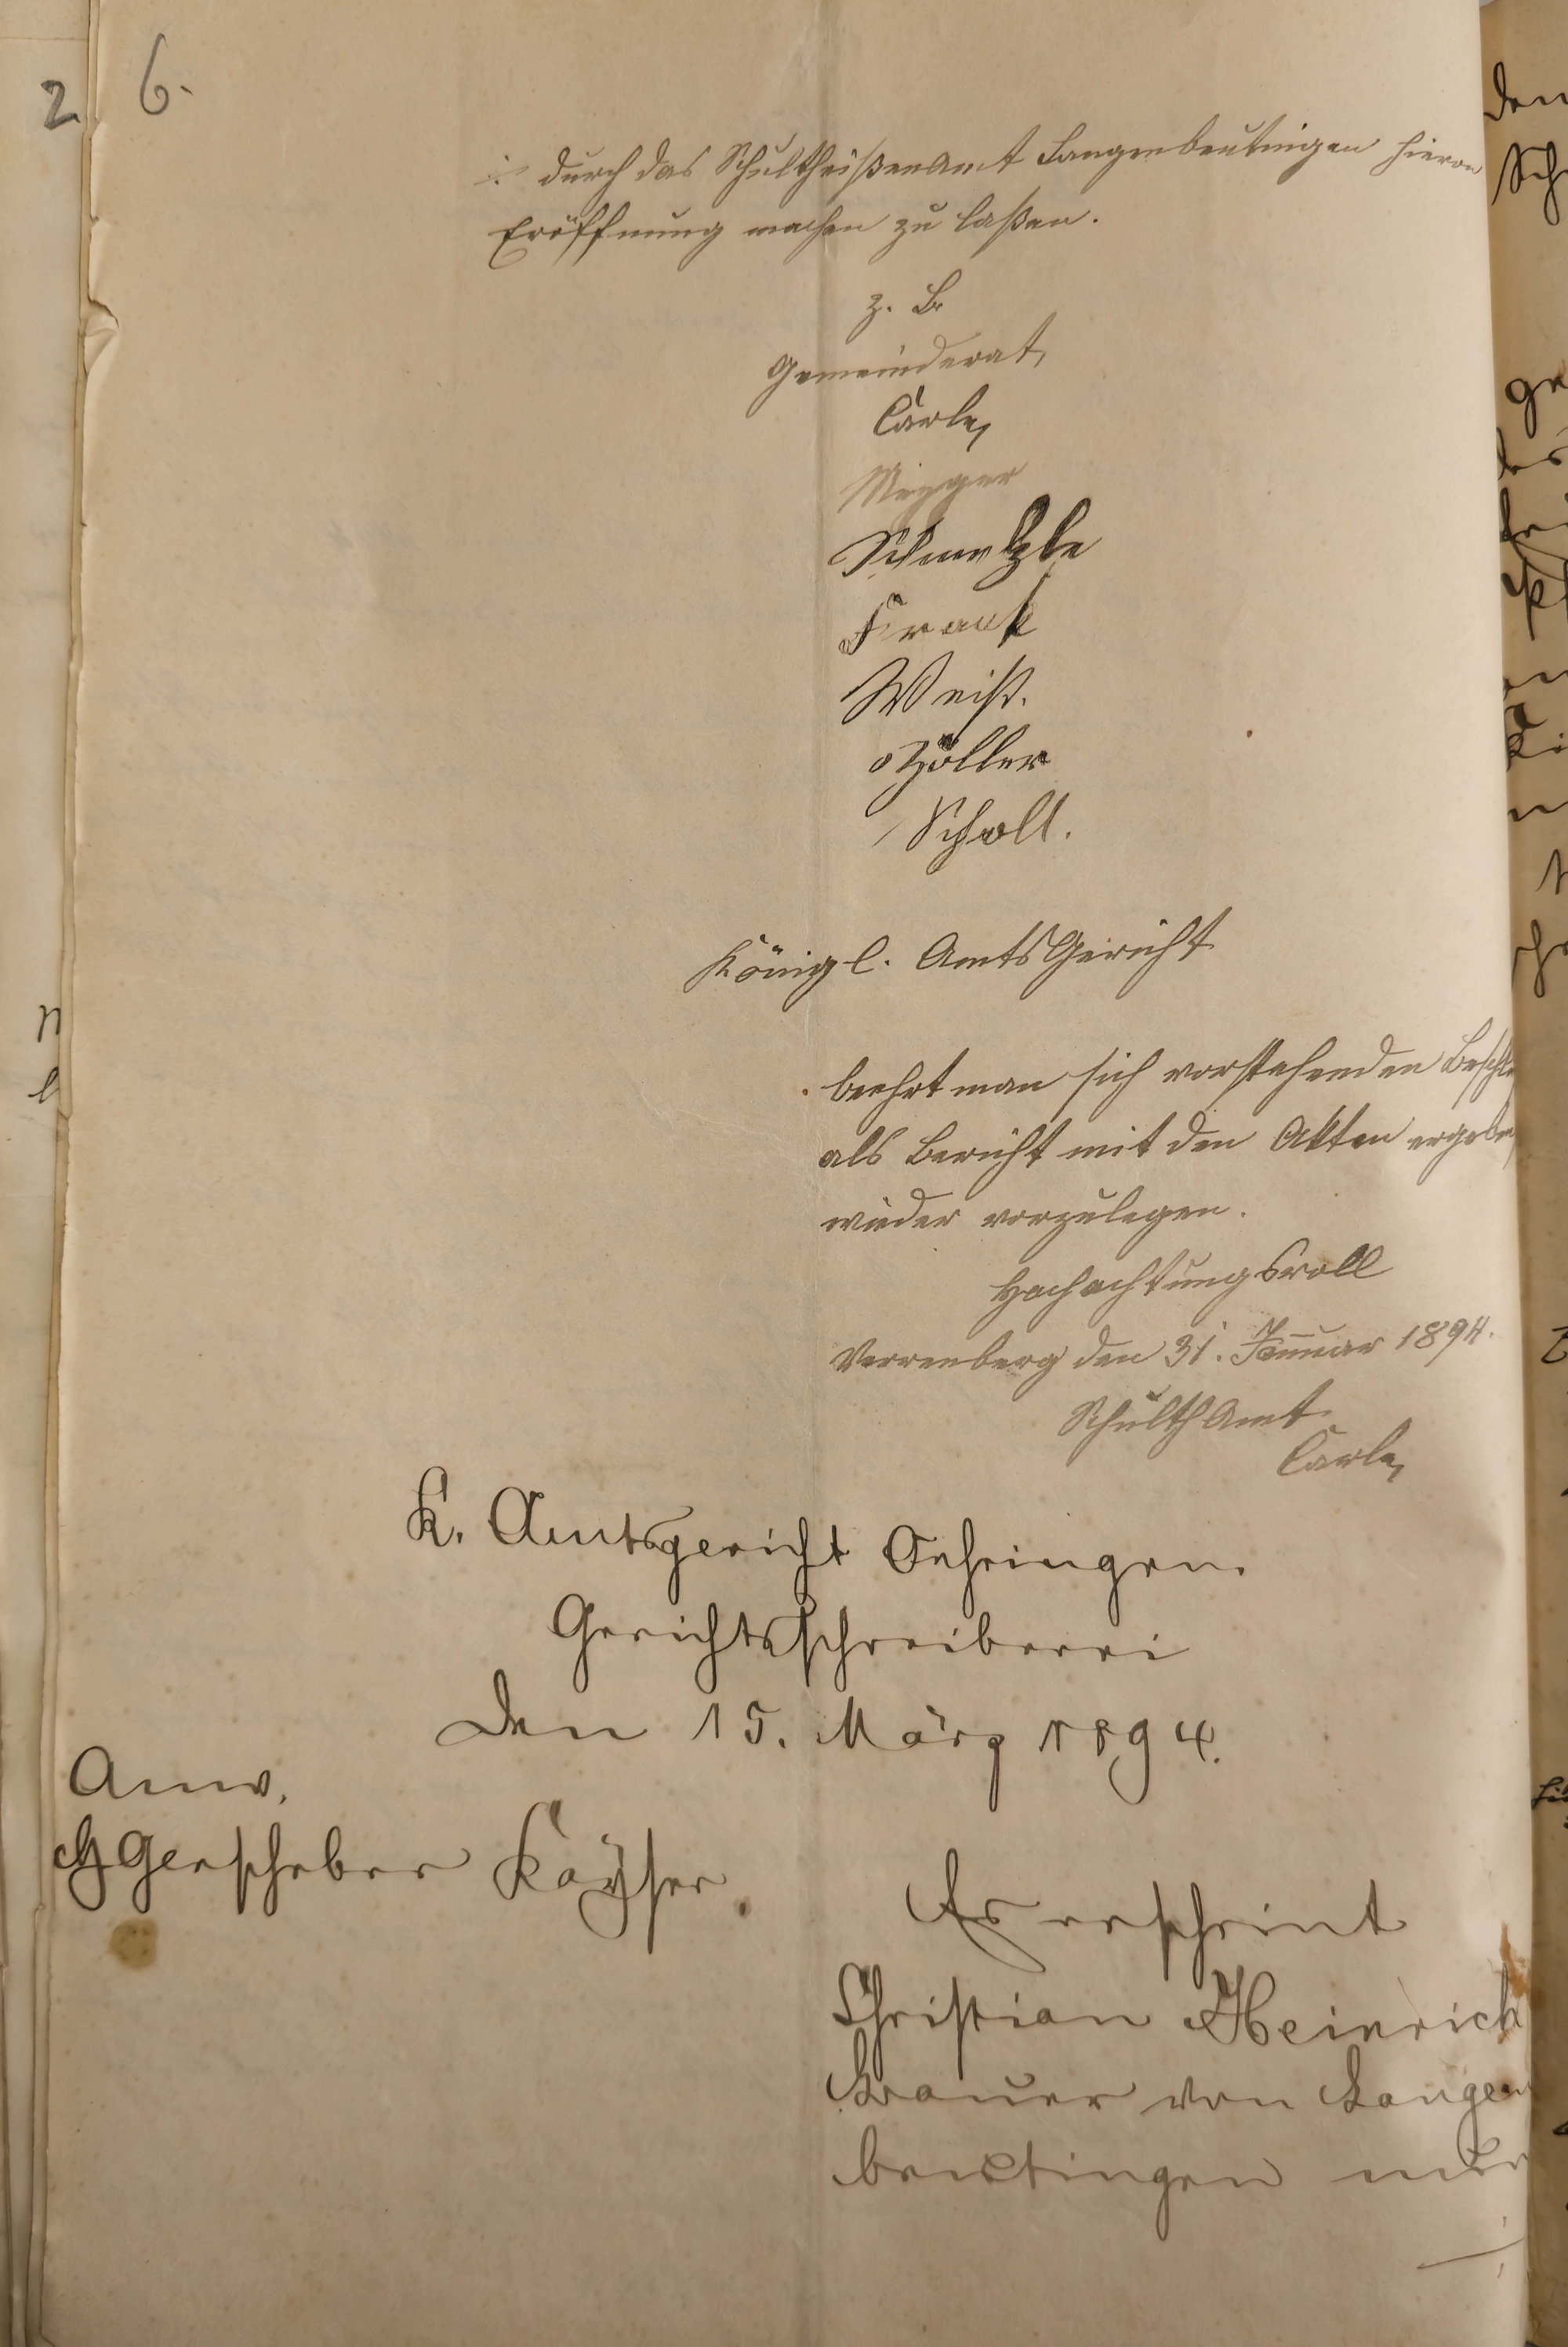 2 6.
durch das Schultheißenamt Langenbeutingen hievon
Eröffnung machen zu laßen.
z. B
Gemeinderat,
Carle,
Mezger
Schmelzle
Frank
Weiß.
Zöller
Scholl.
Königl. Amts Gericht
beehrt man sich vorstehenden Beschl
als Bericht mit den Akten ergeben
wieder vorzulegen.
Hochachtungsvoll
Verrenberg den 31. Januar 1894.
SchulthAmt
Carle,
K. Amtsgericht Oehringen.
Gerichtsschreiberei
Den 15. März 1894.
Anw.
Gerschrbr Kayser.
Es erscheint
Christian Heinrich
Brauer von Langen
beutingen